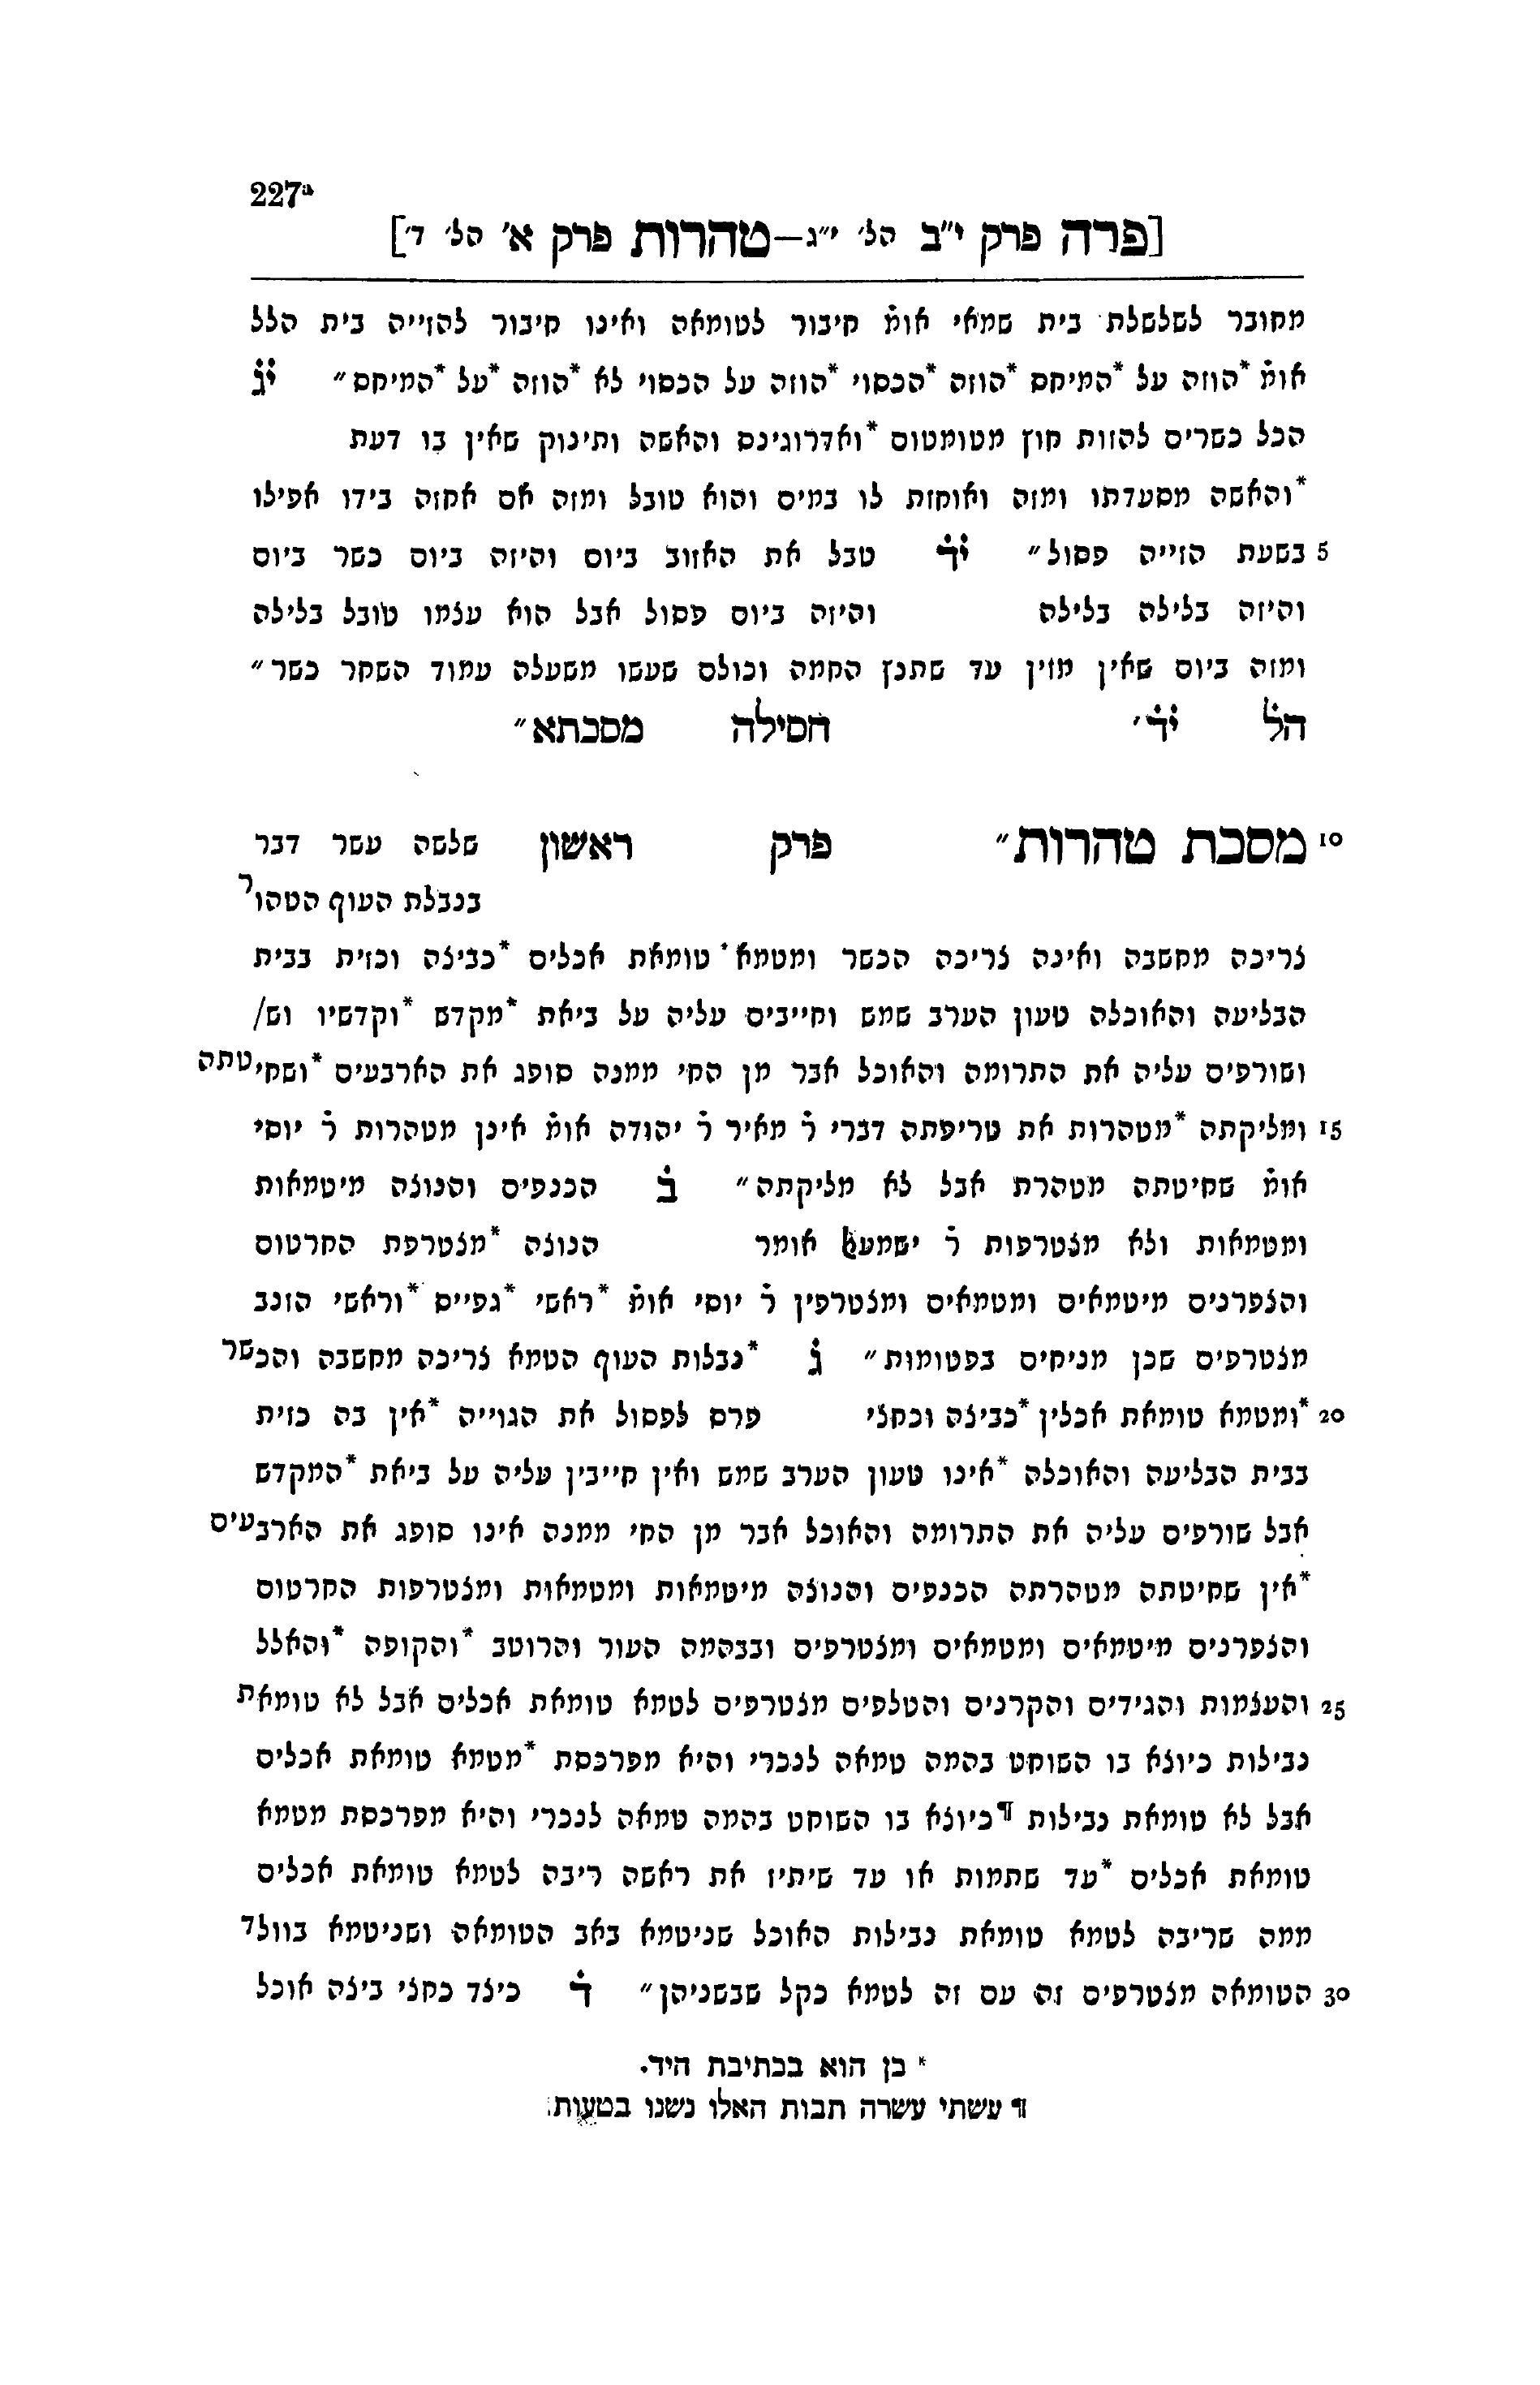 227a
[פרה פרק י״ב הל׳ י״ג—טהרות פרק א׳ הל׳ ד׳]
מחובר לשלשלת בית שמאי אומ̇ חיבור לטומאה ואינו חיבור להזייה בית הלל
אומ̇ *הוזה על *המיחם *הוזה *הכסוי *הוזה על הכסוי לא *הוזה *על *המיחם״ יג̇
הכל כשרים להזות חוץ מטומטום *ואדרוגינס והאשה ותינוק שאין בו דעת
*והאשה מסעדתו ומזה ואוחזת לו במים והוא טובל ומזה אם אחזה בידו אפילו
5 בשעת הזייה פסול״ יד̇ טבל את האזוב ביום והיזה ביום כשר ביום
והיזה בלילה בלילה והיזה ביום פסול אבל הוא עצמו טובל בלילה
ומזה ביום שאין מזין עד שתנץ החמה וכולם שעשו משעלה עמוד השחר כשר״
הל̇ יד̇׳ חסילה מסכתא״
10 מסכת טהרות״ פרק ראשון שלשה עשר דבר
בנבלת העוף הטהור
צריכה מחשבה ואינה צריכה הכשר ומטמא* טומאת אכלים *כביצה וכזית בבית
הבליעה והאוכלה טעון הערב שמש וחייבים עליה על ביאת *מקדש *וקדשיו וש/
ושורפים עליה את התרומה והאוכל אבר מן החי ממנה סופג את הארבעים *ושחיטתה
15 ומליקתה *מטהרות את טריפתה דברי ר̇ מאיר ר̇ יהודה אומ̇ אינן מטהרות ר̇ יוסי
אומ̇ שחיטתה מטהרת אבל לא מליקתה״ ב̇ הכנפים והנוצה מיטמאות
ומטמאות ולא מצטרפות ר̇ ישמעאל אומר הנוצה *מצטרפת החרטום
והצפרנים מיטמאים ומטמאים ומצטרפין ר̇ יוסי אומ̇ *ראשי *גפיים *וראשי הזנב
מצטרפים שכן מניחים בפטומות״ ג̇ *נבלות העוף הטמא צריכה מחשבה והכשר
20 *ומטמא טומאת אכלין *כביצה וכחצי פרס לפסול את הגוייה *אין בה כזית
בבית הבליעה והאוכלה *אינו טעון הערב שמש ואין חייבין עליה על ביאת *המקדש
אבל שורפים עליה את התרומה והאוכל אבר מן החי ממנה אינו סופג את הארבעים
*אין שחיטתה מטהרתה הכנפים והנוצה מיטמאות ומטמאות ומצטרפות החרטום
והצפרנים מיטמאים ומטמאים ומצטרפים ובבהמה העור והרוטב *והקופה *והאלל
25 והעצמות והגידים והקרנים והטלפים מצטרפים לטמא טומאת אכלים אבל לא טומאת
נבילות כיוצא בו השוחט בהמה טמאה לנכרי והיא מפרכסת *מטמא טומאת אכלים
אבל לא טומאת נבילות ¶כיוצא בו השוחט בהמה טמאה לנכרי והיא מפרכסת מטמא
טומאת אכלים *עד שתמות או עד שיתיז את ראשה ריבה לטמא טומאת אכלים
ממה שריבה לטמא טומאת נבילות האוכל שניטמא באב הטומאה ושניטמא בוולד
30 הטומאה מצטרפים זה עם זה לטמא כקל שבשניהן״ ד̇ כיצד כחצי ביצה אוכל
* כן הוא בכתיבת היד.
¶ עשתי עשרה תבות האלו נשנו בטעות.